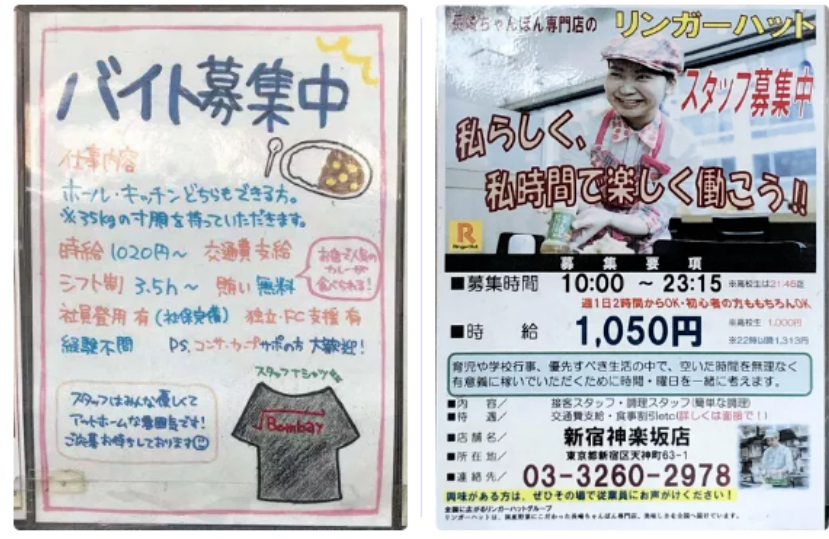 バイト募集中
仕事内容
ホール・キッチンどちらもできる方。
※35kgの寸胴を持っていただきます。
時給 1020円〜 交通費支給
シフト制 3.5h〜 賄い無料
お店で人気の
カレーが
食べられる!
社員登用 有 (社保完備) 独立・FC支援 有
経験不問 P.S. コンサカーデサポの方 大歓迎!
スタッフTシャツ
スタッフはみんな優しくて
アットホームな雰囲気です!
ご応募お待ちしております
Bombay
長崎ちゃんぽん専門店の リンガーハット
スタッフ募集中
私らしく、
私時間で楽しく働こう!!
R
RingerHut
募集要項
■募集時間 10:00 〜 23:15 ※高校生は21:45迄
週1日2時間からOK・初心者の方ももちろんOK
■時 給 1,050円 ※高校生 1,000円
※22時以降1,313円
育児や学校行事、優先すべき生活の中で、空いた時間を無理なく
有意義に稼いでいただくために時間・曜日を一緒に考えます。
■内 容/ 接客スタッフ・調理スタッフ(簡単な調理)
■待 遇/ 交通費支給・食事割引etc(詳しくは面接で!)
■店 舗 名/ 新宿神楽坂店
■所 在 地/ 東京都新宿区天神町63-1
■連 絡 先/ 03-3260-2978
興味がある方は、ぜひその場で従業員にお声がけください!
全国に広がるリンガーハットグループ
リンガーハットは、国産野菜にこだわった長崎ちゃんぽん専門店、美味しさを全国へ届けています。